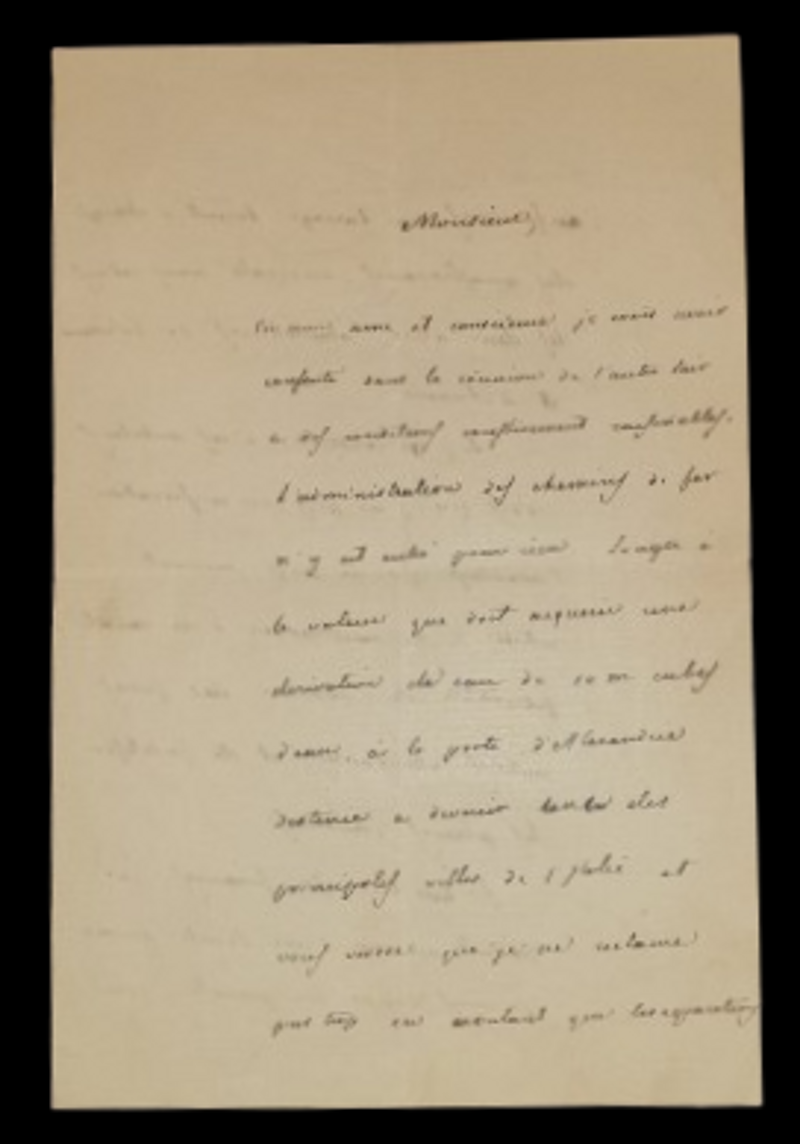 Monsieur
En mon ame et conscience je crois avoir
consenti dans la réunion de l'autre soir
a des conditions raisonnables.
l'administration des chemins de fer
n'y est pour rien Songez à
la valeur que doit acquerir une
derivation de eau de 10 m cubes
d'eau, à la porte d'Alexandrie
destinée a devenir des
principales villes de l'Italie et
vous verrez que je ne reclame
pas trop en que les